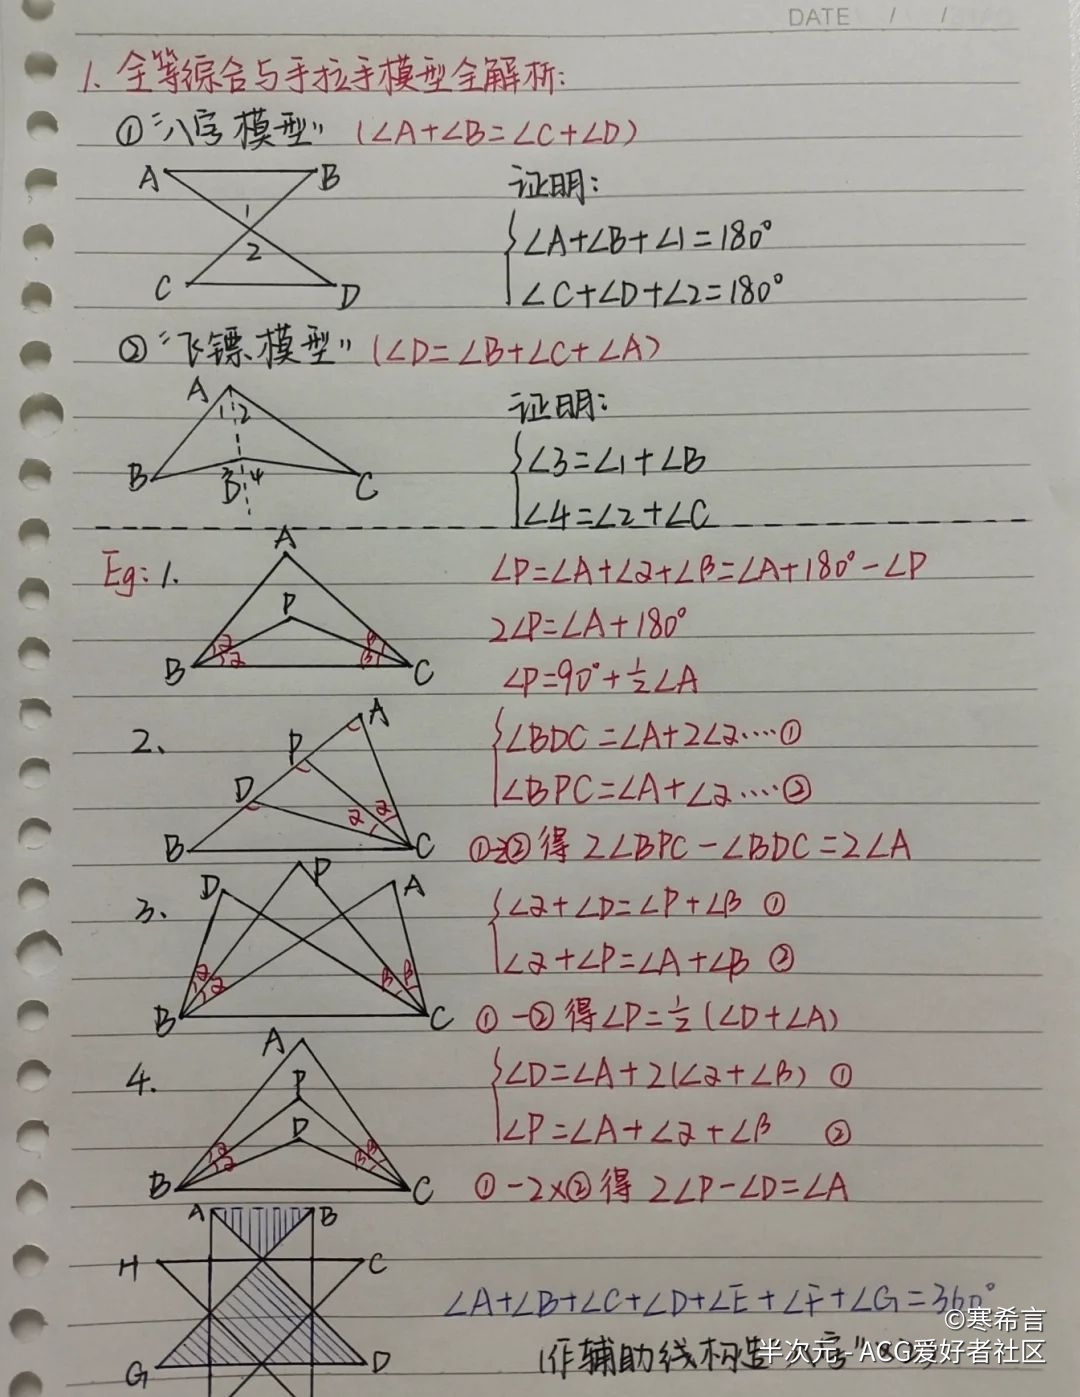 DATE / /
1. 全等综合与手拉手模型全解析:
①“八字模型” (∠A+∠B=∠C+∠D)
A B
证明:
1
∠A+∠B+∠1=180°
2
C D
∠C+∠D+∠2=180°
②“飞镖模型” (∠D=∠B+∠C+∠A)
A
1 2
证明:
B 3 D 4 C
∠3=∠1+∠B
∠4=∠2+∠C
Eg: 1.
A
P
B α α β β C
∠P=∠A+∠α+∠β=∠A+180°-∠P
2∠P=∠A+180°
∠P=90°+½∠A
2、
A
P
D
α α
B C
∠BDC=∠A+2∠α····①
∠BPC=∠A+∠α····②
得 2∠BPC-∠BDC=2∠A
3、
D P A
α α β β
B C
∠α+∠D=∠P+∠β ①
∠α+∠P=∠A+∠β ②
①-②得∠P=½(∠D+∠A)
4.
A
P
D
α α β β
B C
∠D=∠A+2(∠α+∠β) ①
∠P=∠A+∠α+∠β ②
①-2×②得 2∠P-∠D=∠A
A B
H C
G D
∠A+∠B+∠C+∠D+∠E+∠F+∠G=360°
作辅助线构造
©寒希言
半次元-ACG爱好者社区